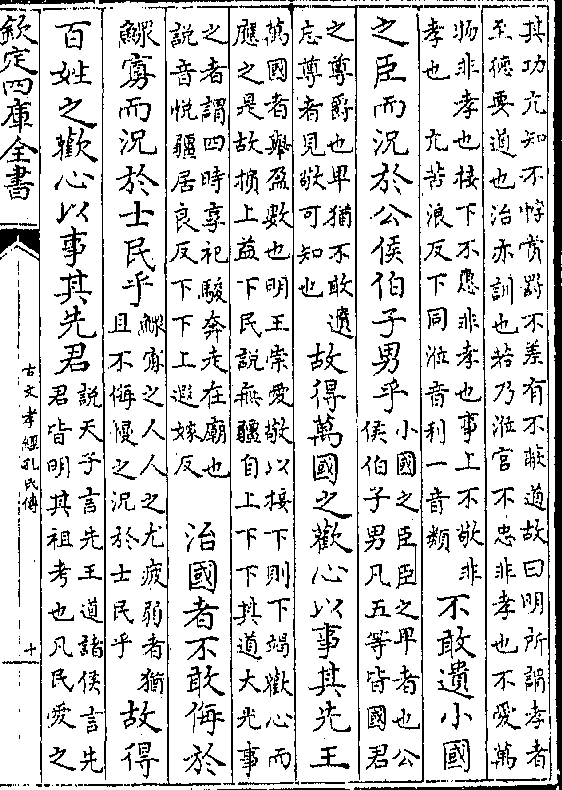 其功亢知不悖賞罰不差有不蔽道故曰明所謂孝者
至德要道也治亦訓也若乃涖官不忠非孝也不愛萬
物非孝也接下不惠非孝也事上不敬非
孝也 亢苦浪反下同涖音利一音類
不敢遺小國
之臣而況於公侯伯子男乎
小國之臣臣之卑者也公
侯伯子男凡五等皆國君
之尊爵也卑猶不敢遺
忘尊者見敬可知也
故得萬國之歡心以事其先王
萬國者舉盈數也明王崇愛敬以接下則下竭歡心而
應之是故損上益下民說無疆自上下下其道大光事
之者謂四時享祀駿奔走在廟也
說音悅疆居良反下下上遐嫁反
治國者不敢侮於
鰥寡而況於士民乎
鰥寡之人人之尤疲弱者猶
且不侮慢之況於士民乎
故得
百姓之歡心以事其先君
說天子言先王道諸侯言先
君皆明其祖考也凡民愛之
欽定四庫全書
古文孝經孔氏傳
十